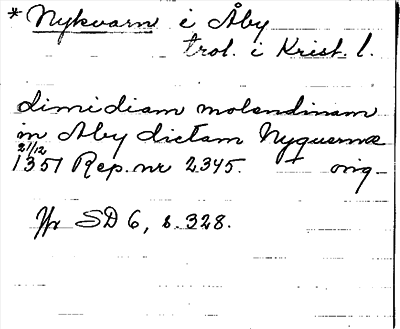 * Nykvarn i Åby
trol. i Krist. l.
dimidiam molendinam
in Aby dictam Nyquernæ
21/12
1351 Rep. nr 2345. orig
Jfr SD 6, s. 328.